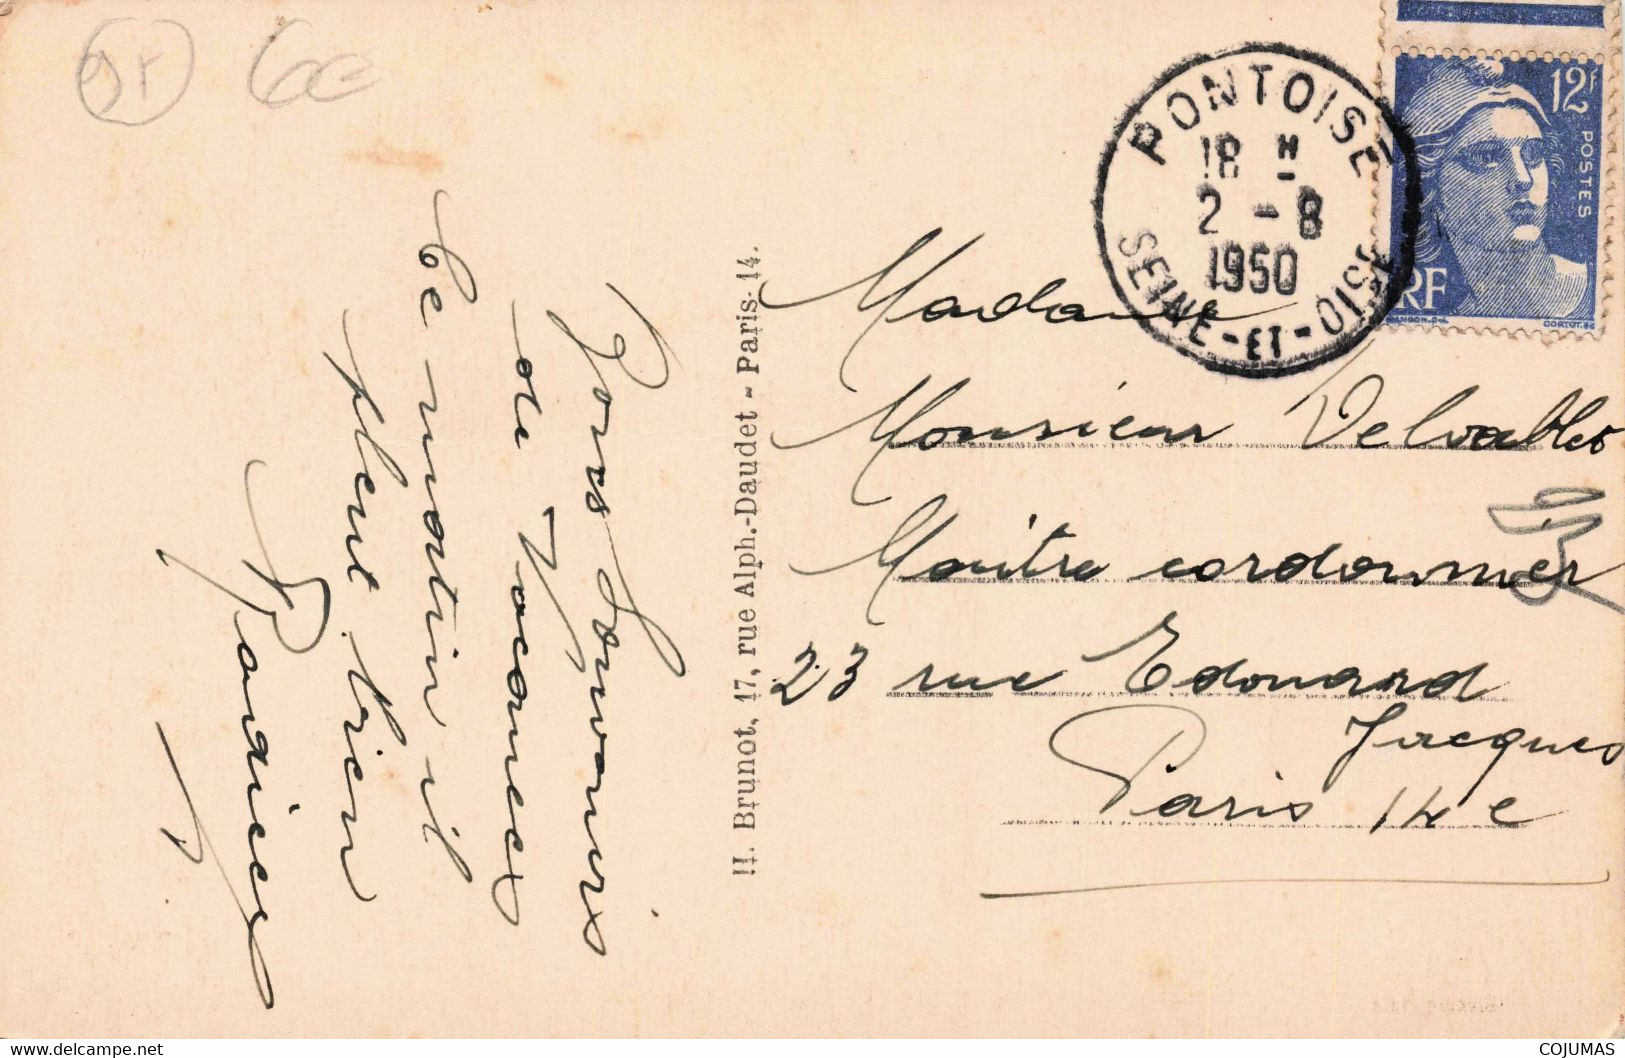 95 6€
PONTOISE
18 H
2 - 8
1950
SEINE-ET-OISE
12F
POSTES
RF
GANDON.DEL
CORTOT.SC
Bons Souvenirs
de Vacances
Ce matin il
pleut bien
H. Brunot, 17, rue Alph.-Daudet - Paris-14.
Madame
Monsieur
Maitre cordonnier
23 rue Edouard
Jacques
Paris 14 e
COJUMAS